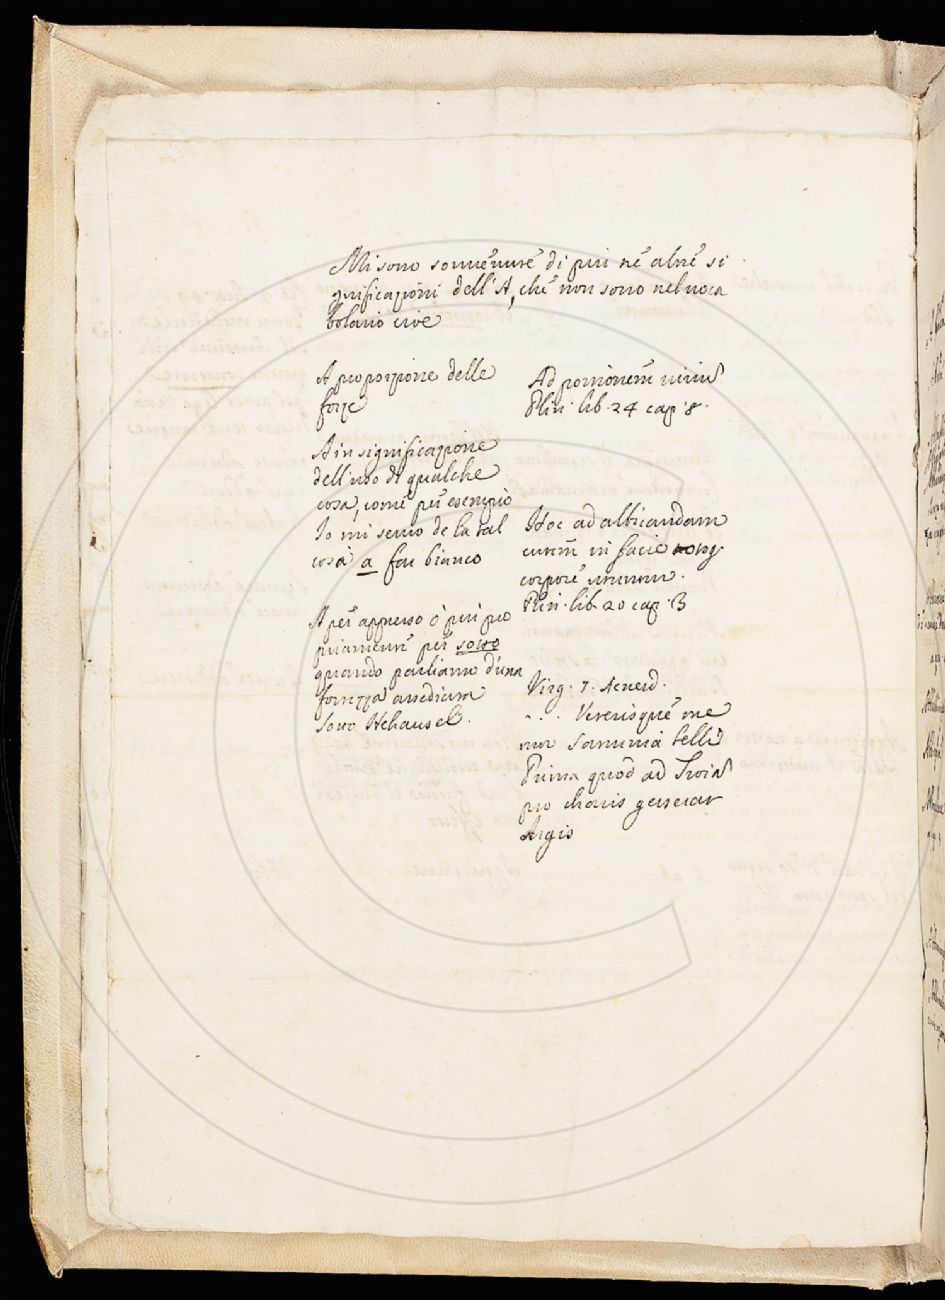 Mi sono sovvenute di piu tre altre si
gnificazioni dell'A, che non sono nel voca
bolario cioe
A proporzione delle
forze
A in significazione
dell'uso di qualche
cosa, come per esempio
Io mi servo de la tal
cosa a far bianco
A per appresso ò piu pro
priamente per sotto
quando parliamo d'una
fortezza assediata
sotto Hehausel.
Ad portionem virium
Plin. lib. 24 cap. 8.
Hoc ad albicandam
cutem in facie
corpore utuntur.
Plin. lib. 20 cap. 3
Virg. 7. Aeneid.
.... Veterisque me
mor Saturnia belli
Prima quod ad Troia
pro charis gesserat
Argis